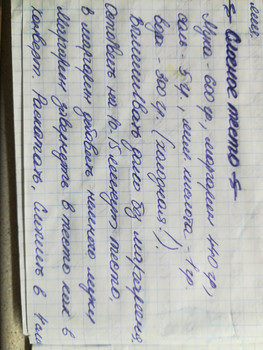 Слоёное тесто
Мука - 600 гр, маргарин 400 гр,
соль - 5 г, лим. кислота - 1 гр.
вода - 300 гр. (холодная!)
Вымешивать долго без маргарина
Оставить на 10-15 минут тесто,
в маргарин добавить немного муки
Маргарин завернуть в тесто как в
конверт. Раскатать, сложить в 4